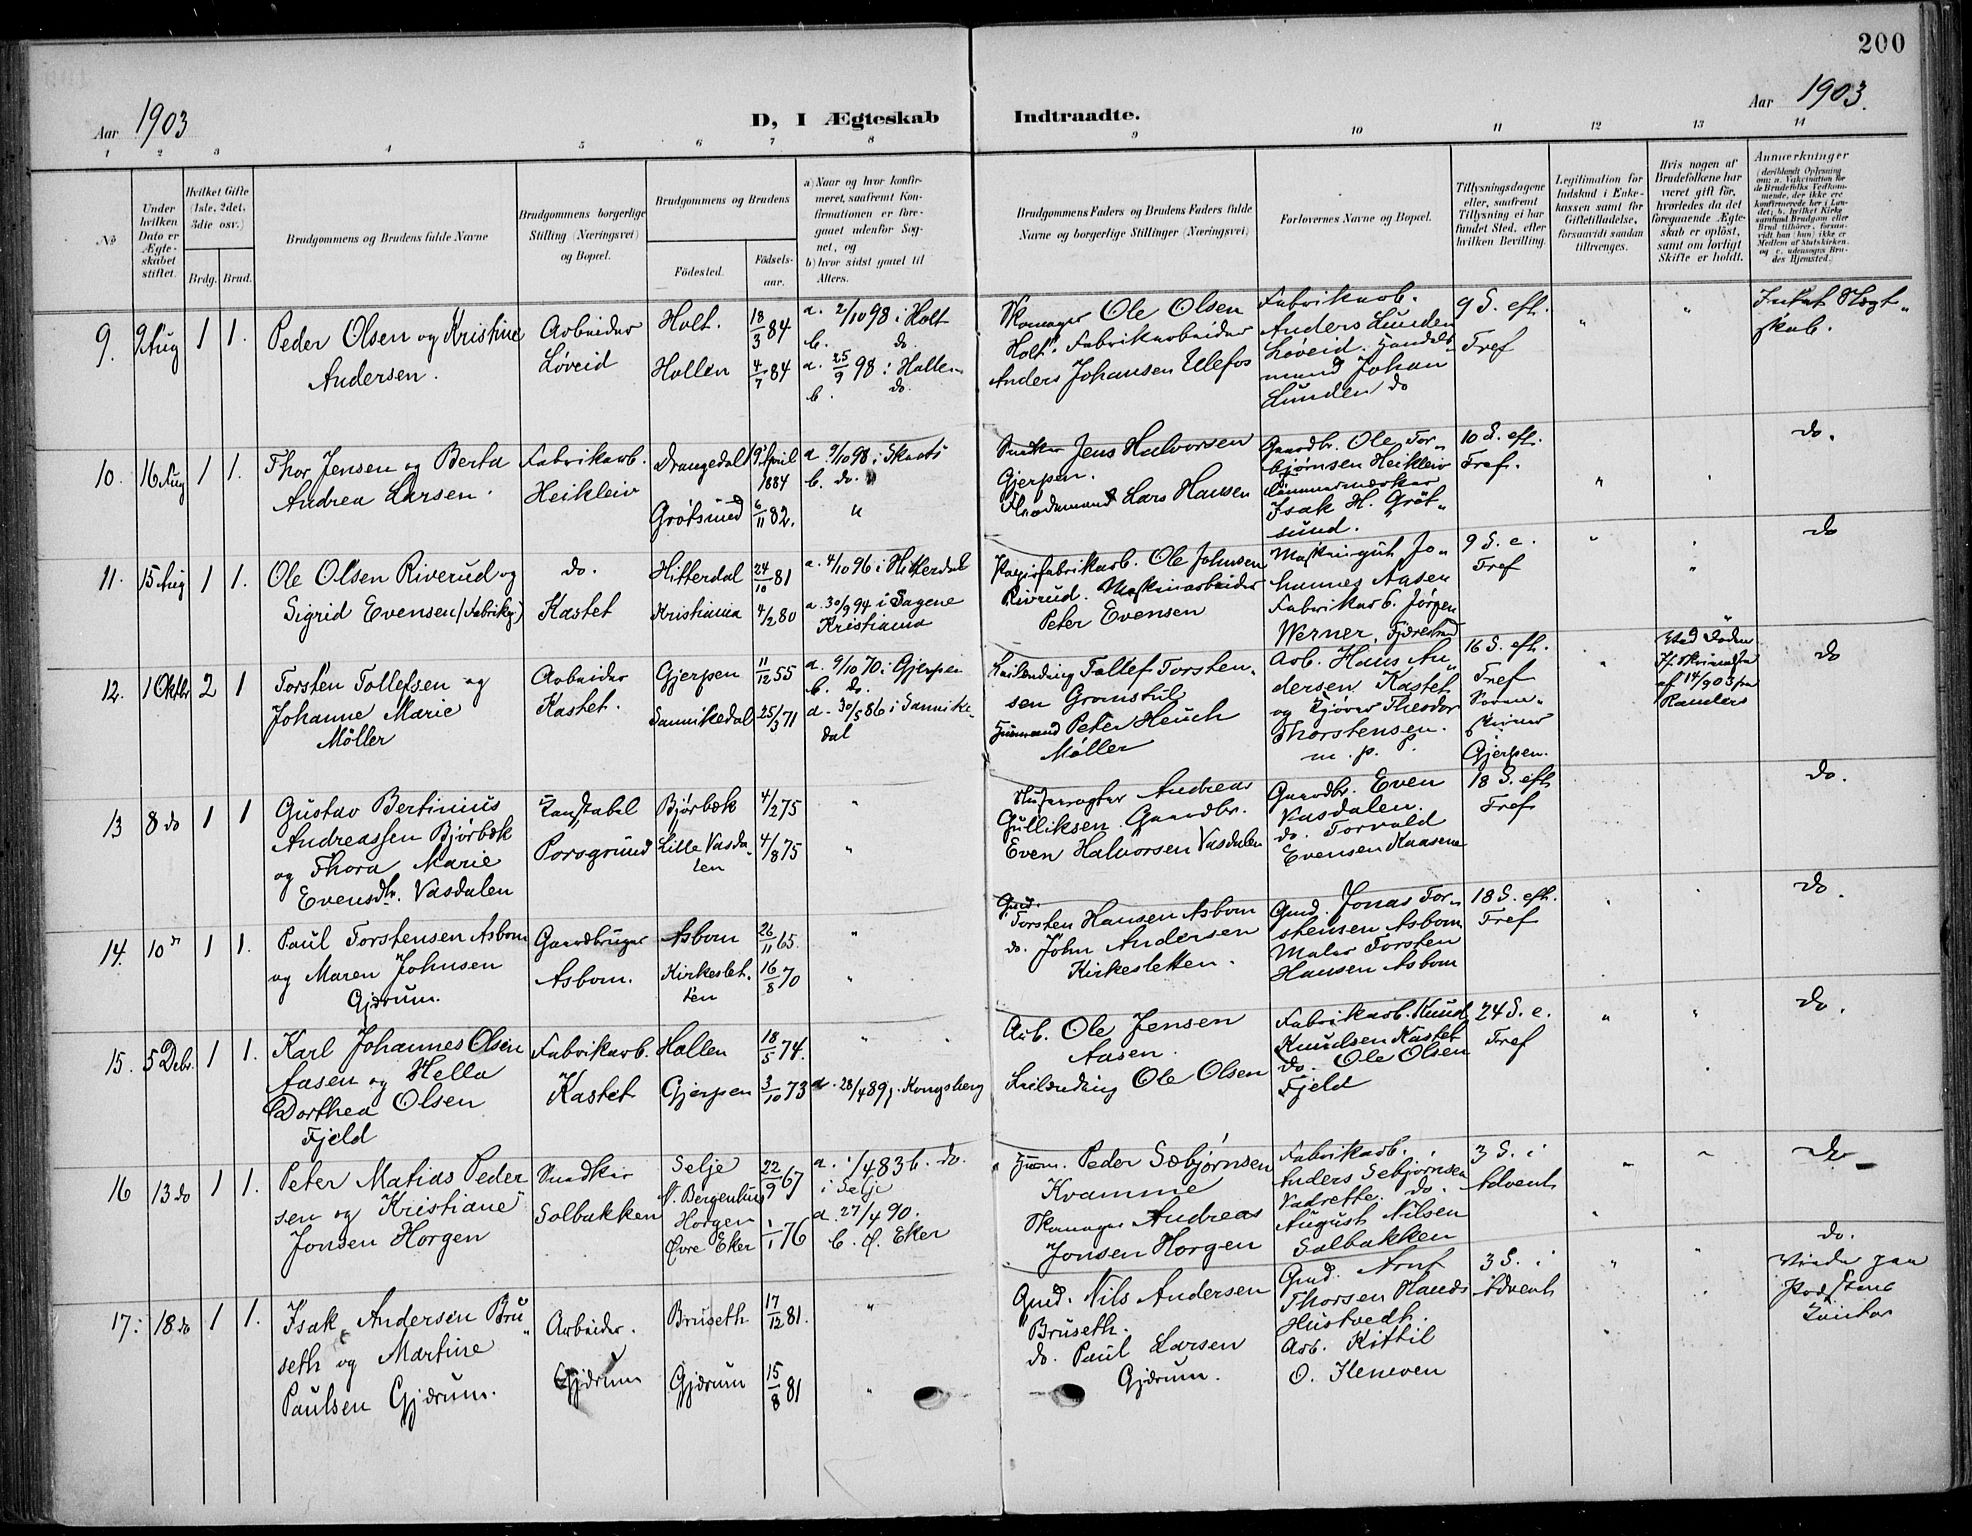 200
Aar 1903
D, I Ægteskab Indtraadte.
Aar 1903.
1 2 3 4 5 6 7 8 9 10 11 12 13 14
No
Under hvilken Dato er Ægteskabet stiftet.
Hvilket Gifte (1ste, 2det, 3die osv.)
Brdg. Brud.
Brudgommens og Brudens fulde Navne
Brudgommens borgerlige Stilling (Næringsvei) og Bopæl.
Brudgommens og Brudens
Födested. Födselsaar.
a) Naar og hvor konfirmeret, saafremt Konfirmationen er foregaaet udenfor Sognet, og
b) hvor sidst gaaet til Alters.
Brudgommens Faders og Brudens Faders fulde Navne og borgerlige Stillinger (Næringsvei)
Forlovernes Navne og Bopæl.
Tillysningsdagene eller, saafremt Tillysning ei har fundet Sted, efter hvilken Bevilling.
Legitimation for Indskud i Enkekassen samt for Giftetilladelse, forsaavidt saadan tiltrænges.
Hvis nogen af Brudefolkene har været gift för, hvorledes da det foregaaende Ægteskab er oplöst, samt om lovligt Skifte er holdt.
Anmerkninger
9. 2 Aug 1 1.
Peder Olsen og Kristine
Andersen.
Arbeider
Løveid
Holt. 18/3 84
Hollen 4/7 84
a. 2/10 98 i Holt
b. do.
a. 25/9 98 i Hollen
b. do.
Skomager Ole Olsen
Holt. Fabrikarbeider
Anders Johansen Ulefos
Fabrikarb.
Anders Lunden
Løveid. Handels-
mand Johan
Lunden do
9 S. eft.
Tref
10. 16 Aug 1 1.
Thor Jensen og Berta
Andrea Larsen.
Fabrikarb.
Heikleiv
Drangedal 9 April 1884
Grøtsund 6/11 82.
b. do.
Jens Halvorsen
Gjerpen.
Lars Hansen
Gaardbr. Ole Tor-
bjørnsen Heikleiv
Isak H. Grøt-
sund.
10 S. eft.
Tref.
do.
11. 15 Aug 1 1.
Ole Olsen Riverud og
Sigrid Evensen (Fabrikg)
do.
Kastet
Hitterdal 24/10 81
Kristiania 4/2 80
a. 4/10 96 i Hitterdal
a. 30/9 94 i Sagene
Kristiania
Papirfabrikarb. Ole Johnsen
Rivrud. Maskinarbeider
Peter Evensen
Maskingut Jo-
hannes Aasen
Fabrikarb. Jørgen
Werner,
9 S. e.
Tref
do
12. 1 Oktbr 2 1
Torsten Tollefsen og
Johanne Marie
Møller
Arbeider
Kastet.
Gjerpen 11/12 55
Sannikedal 25/3 71
a. 9/10 70 i Gjerpen
b. do.
a. 30/5 86 i Sannike-
dal
Leilending Tollef Torsten-
sen Gromstul
Husmand Peter Heuch
Møller
Arb. Hans An-
dersen Kastet
og Kjører Theodor
Thorstensen.
m. p.
16 S. eft.
Tref
Gjerpen.
Ved Døden
af 14/9 03 fra
do
13 8 do 1 1
Gustav Bertinius
Andreassen Bjørbæk
og Thora Marie
Evensdtr. Vasdalen
Konstabel
Porsgrund
Bjørbæk 4/2 75
Lille Vasda-
len 4/8 75
Andreas
Gulliksen Gaardbr.
Even Halvorsen Vasdalen
Gaardbr. Even
Vasdalen.
do. Torvald
Evensen Kaasene
18 S. eft.
Tref
do.
14. 10 do 1 1.
Paul Torstensen Asbom
og Maren Johnsen
Gjærum.
Gaardbruger
Asbom.
Asbom 26/11 65.
Kirkeslet-
ten 16/8 70
Gmd.
Torsten Hansen Asbom
do. John Andersen
Kirkesletten.
Gmd. Jonas Tor-
stensen Asbom
Maler Torsten
Hansen Asbom
18 S. eft.
Tref
do.
15. 5 Debr. 1 1.
Karl Johannes Olsen
Aasen og Hella
Dorthea Olsen
Fjeld
Fabrikarb.
Kastet
Hollen 18/5 74.
Gjerpen 3/10 73
a. 28/4 89 i Kongsberg
Arb. Ole Jensen
Aasen.
Leilending Ole Olsen
Fabrikarb. Knud
Knudsen Kastet
do. Ole Olsen
Fjeld
24 S. e.
Tref
do.
16 13 do 1 1.
Peter Matias Peder
sen og Kristiane
Jonsen Horgen
Snedker
Solbakken
Selje
N. Bergenhus 22/9 67
Horgen
Øvre Eker 1/1 76
a. 1/4 83 b. do.
i Selje
a. 27/4 90.
b. Ø. Eker
Husm. Peder Sæbjørnsen
Kvamme
Skomager Andreas
Jonsen Horgen
Fabrikarb.
Anders Sebjørnsen
Vadrette. do.
August Nilsen
Solbakken
3 S. i
Advent
do.
17. 18 do 1 1.
Isak Andersen Bru-
seth og Martine
Paulsen Gjærum.
Arbeider.
Gjærum
Bruseth 17/12 81.
Gjærum 15/8 81
Gmd. Nils Andersen
Bruseth.
do. Paul Larsen
Gjærum.
Gmd. Arnt
Thorsen Hauds
Hustvedt.
Arb. Kittil
O. Steneven
3 S. i
Advent
do.